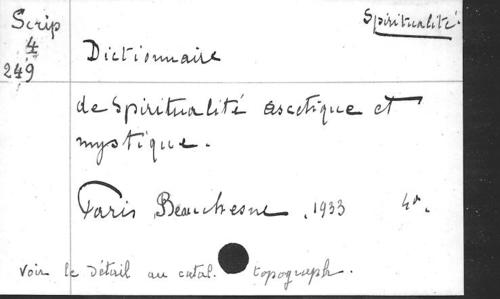 Scrip
4
249
Spiritualité.
Dictionnaire
de Spiritualité ascétique et
mystique.
Paris Beauchesne, 1933 4°.
Voir le détail au catal. topograph.